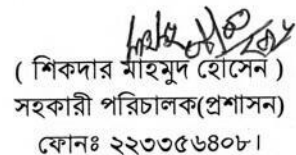 ( শিকদার মাহমুদ হোসেন )
সহকারী পরিচালক(প্রশাসন)
ফোনঃ ২২৩৩৫৬৪০৮।